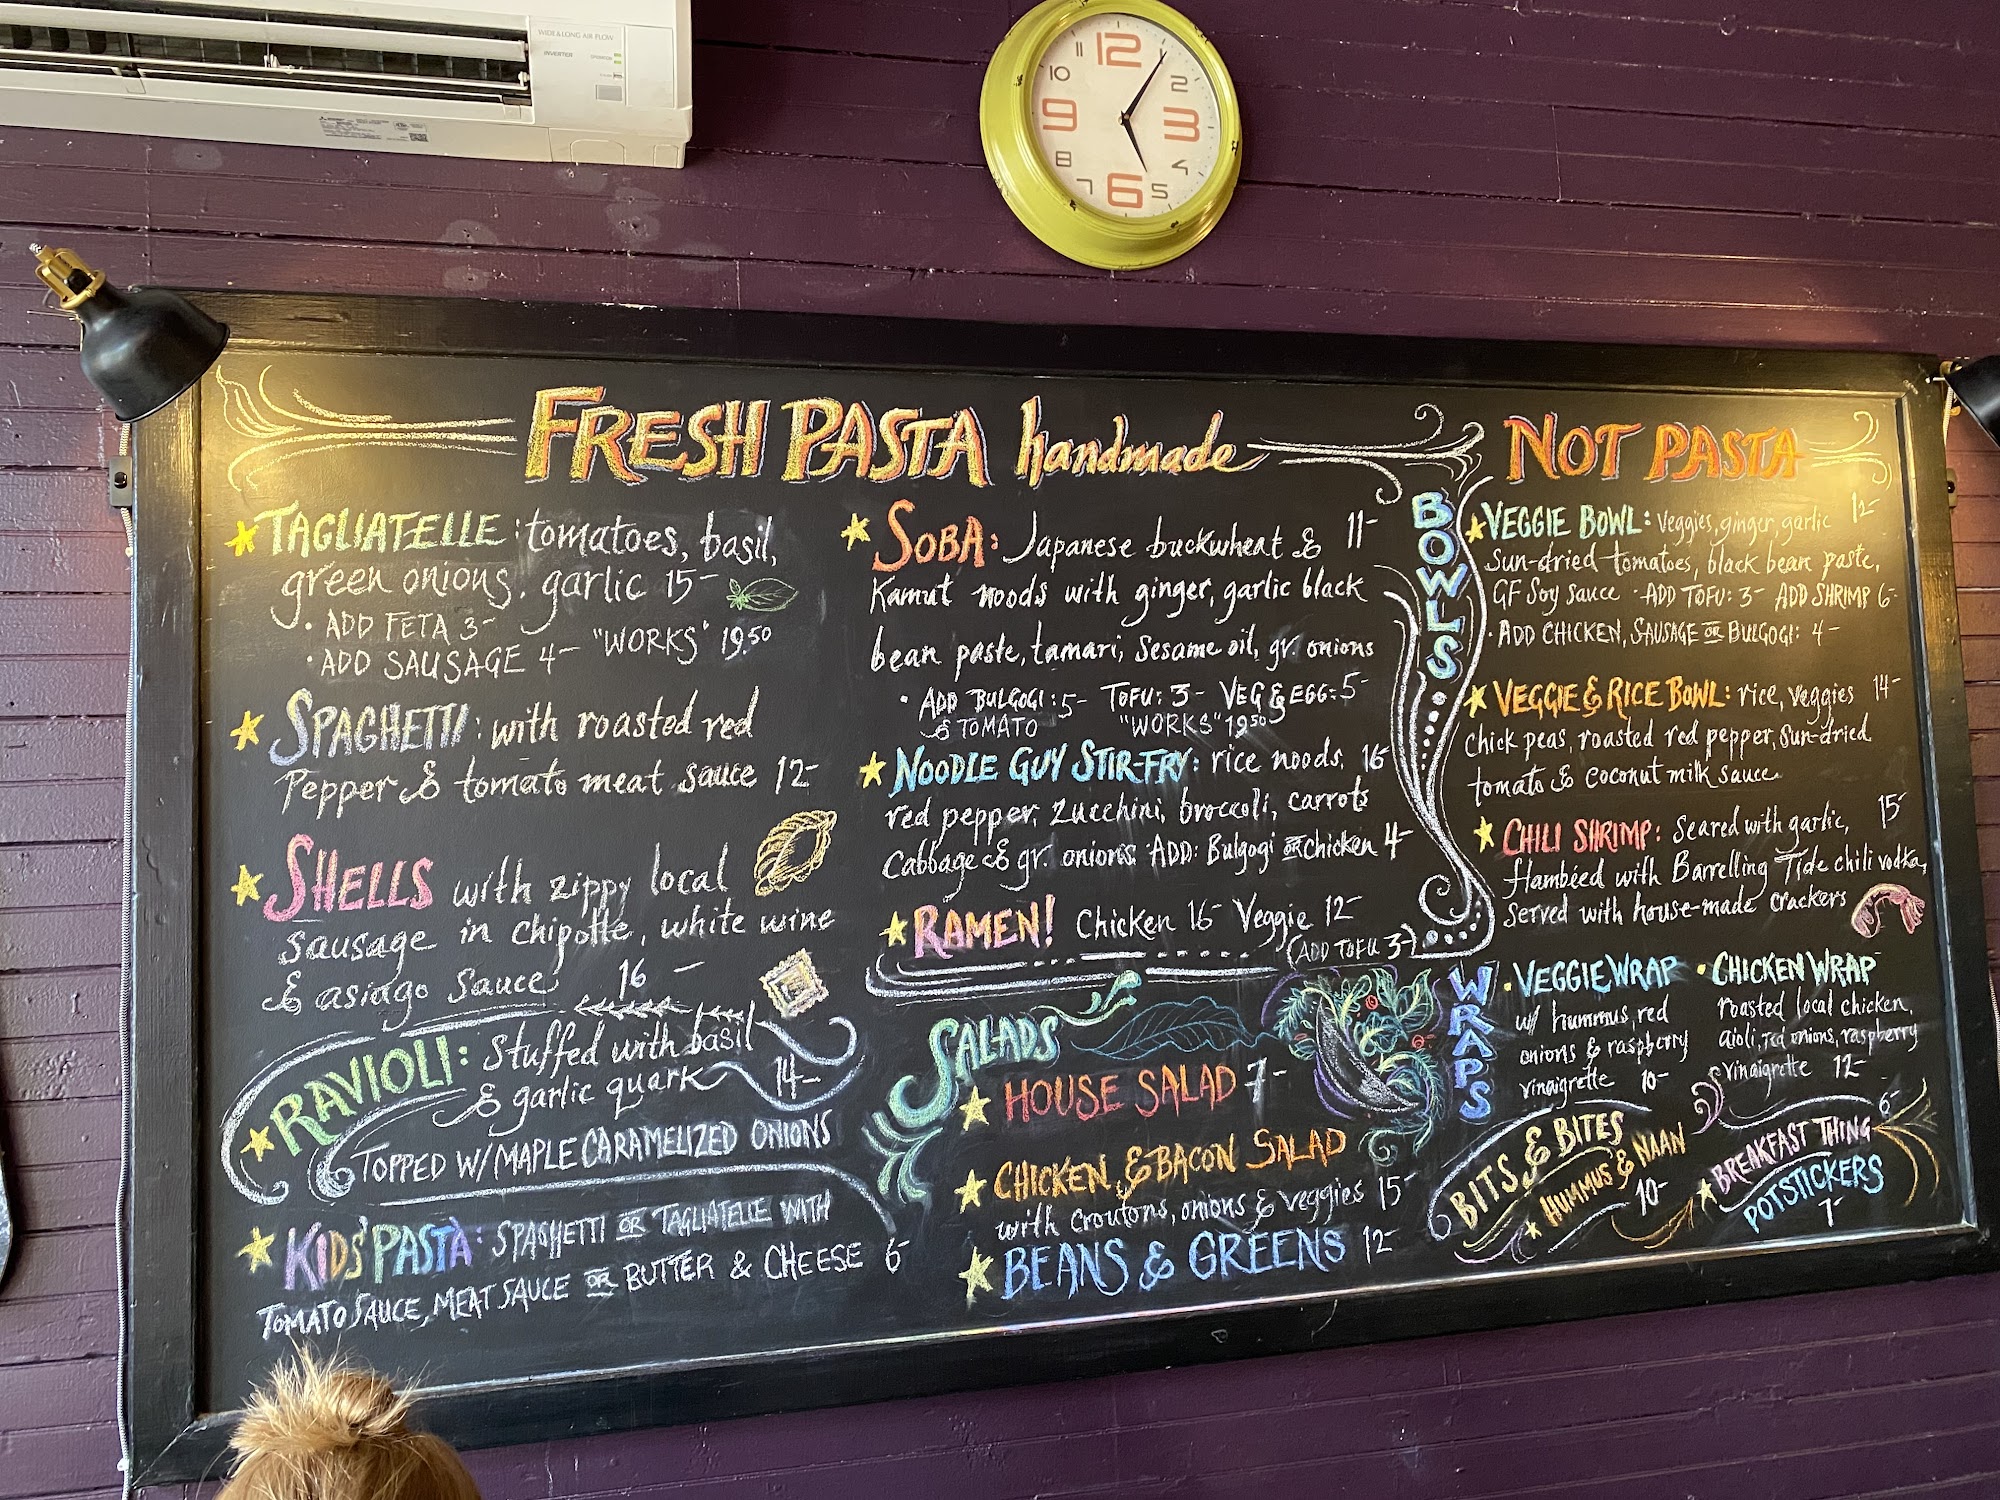 WIDE & LONG AIR FLOW
INVERTER
11 12
10 2
9 3
8 4
7 6 5
FRESH PASTA handmade
TAGLIATELLE: tomatoes, basil,
green onions. garlic 15-
· ADD FETA 3-
· ADD SAUSAGE 4- "WORKS" 19.50
SPAGHETTI: with roasted red
Pepper & tomato meat sauce 12-
SHELLS with zippy local
sausage in chipotle, white wine
& asiago sauce 16 -
RAVIOLI: Stuffed with basil
& garlic quark 14-
TOPPED W/ MAPLE CARAMELIZED ONIONS
KIDS' PASTA: SPAGHETTI OR TAGLIATELLE WITH
TOMATO SAUCE, MEAT SAUCE OR BUTTER & CHEESE 6-
SOBA: Japanese buckwheat & 11-
Kamut noods with ginger, garlic black
bean paste, tamari, sesame oil, gr. onions
· ADD BULGOGI: 5- TOFU: 3- VEG & EGG: 5-
& TOMATO "WORKS" 19.50
NOODLE GUY STIR-FRY: rice noods, 16-
red pepper, zucchini, broccoli, carrots
Cabbage & gr. onions. ADD: Bulgogi OR Chicken 4-
RAMEN! Chicken 16- Veggie 12-
(ADD TOFU 3-)
SALADS
HOUSE SALAD 7-
CHICKEN & BACON SALAD
with croutons, onions & veggies 15-
BEANS & GREENS 12-
NOT PASTA
BOWLS
VEGGIE BOWL: Veggies, ginger, garlic 12-
Sun-dried tomatoes, black bean paste,
GF Soy sauce · ADD TOFU: 3- ADD SHRIMP 6-
· ADD CHICKEN, SAUSAGE OR BULGOGI: 4-
VEGGIE & RICE BOWL: rice, veggies 14-
chick peas, roasted red pepper, sun-dried
tomato & coconut milk sauce
CHILI SHRIMP: Seared with garlic, 15-
flambéed with Barrelling Tide chili vodka,
Served with house-made crackers
WRAPS
· VEGGIE WRAP
w/ hummus, red
onions & raspberry
vinaigrette 10-
· CHICKEN WRAP
roasted local chicken,
aioli, red onions, raspberry
vinaigrette 12-
BITS & BITES
HUMMUS & NAAN
10-
BREAKFAST THING 6-
POTSTICKERS
7-